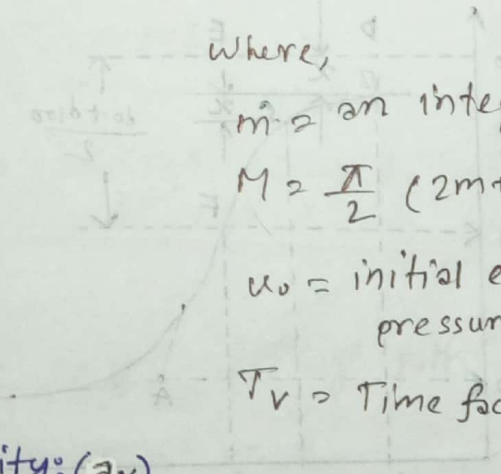 Where,
m = an inte
M = π/2 (2m+
u₀ = initial e
pressur
Tv = Time fac
ity: (av)